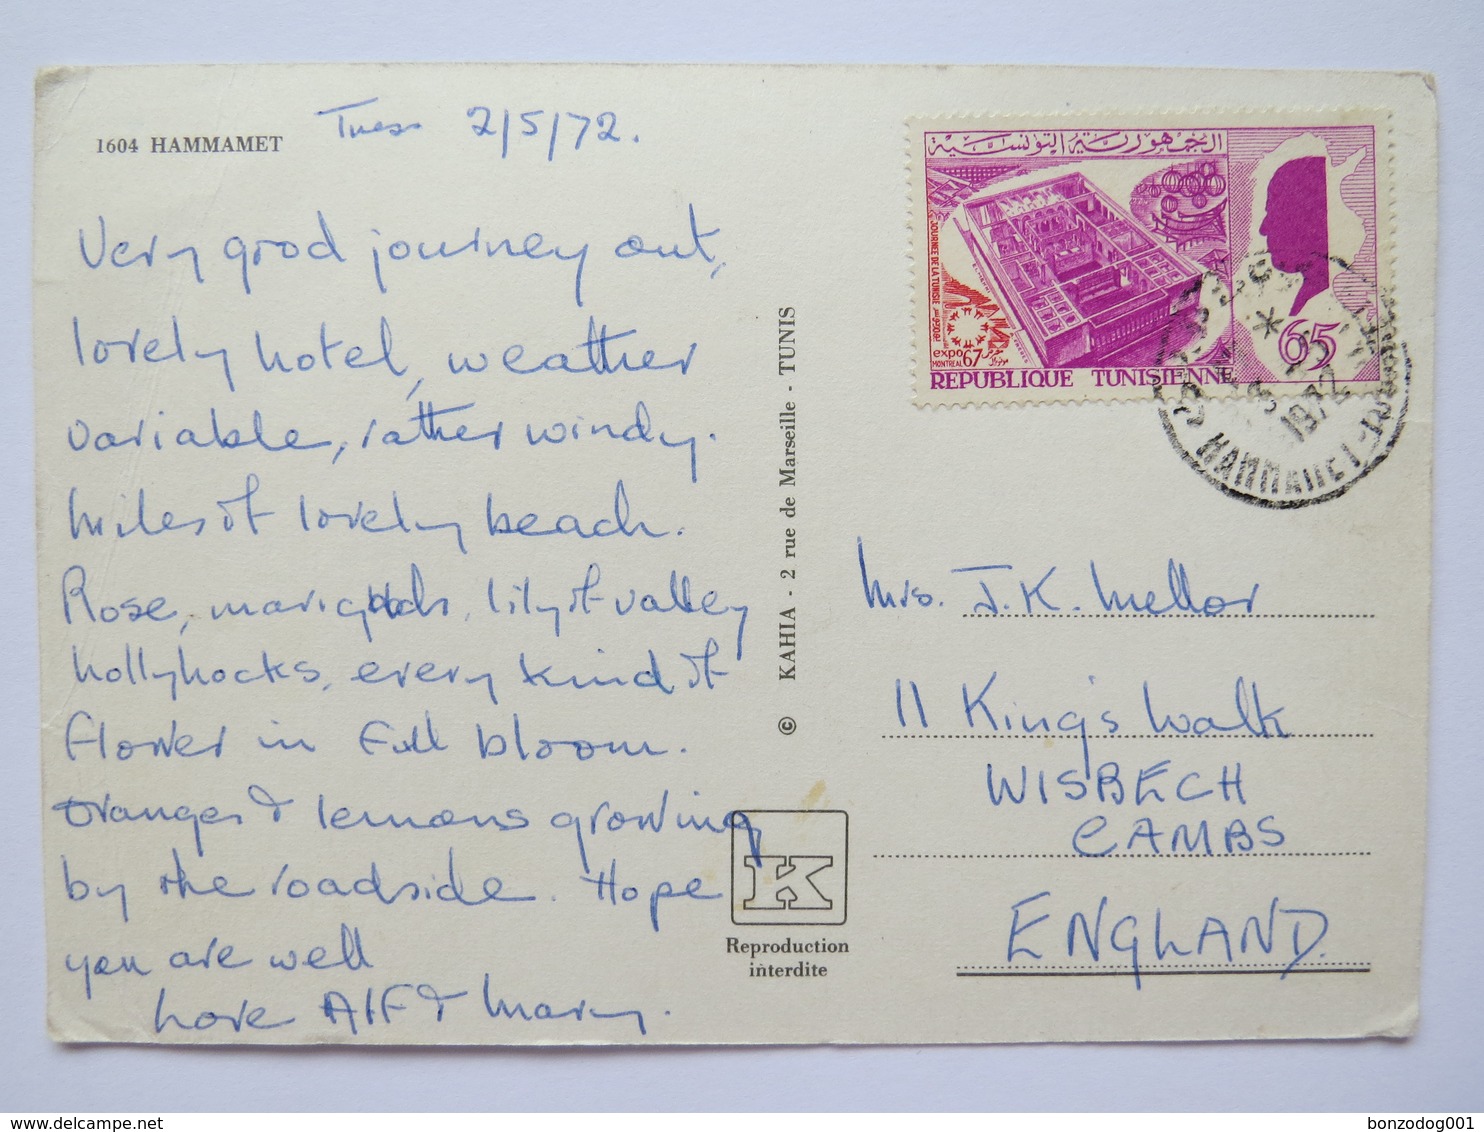 1604 HAMMAMET
Tues 2/5/72.
Very good journey out,
lovely hotel, weather
variable, rather windy.
Miles of lovely beach.
Rose, marigolds, lily of valley
hollyhocks, every kind of
flower in full bloom.
Oranges & lemons growing
by the roadside. Hope
you are well
Love Alf & Mary.
© KAHIA - 2 rue de Marseille - TUNIS
K
Reproduction
interdite
الجمهورية التونسية
JOURNEE DE LA TUNISIE
expo 67
MONTREAL
65
REPUBLIQUE TUNISIENNE
1972
HAMMAMET
Mrs. J.K. Mellor
11 King's Walk
WISBECH
CAMBS
ENGLAND.
bonzodog001